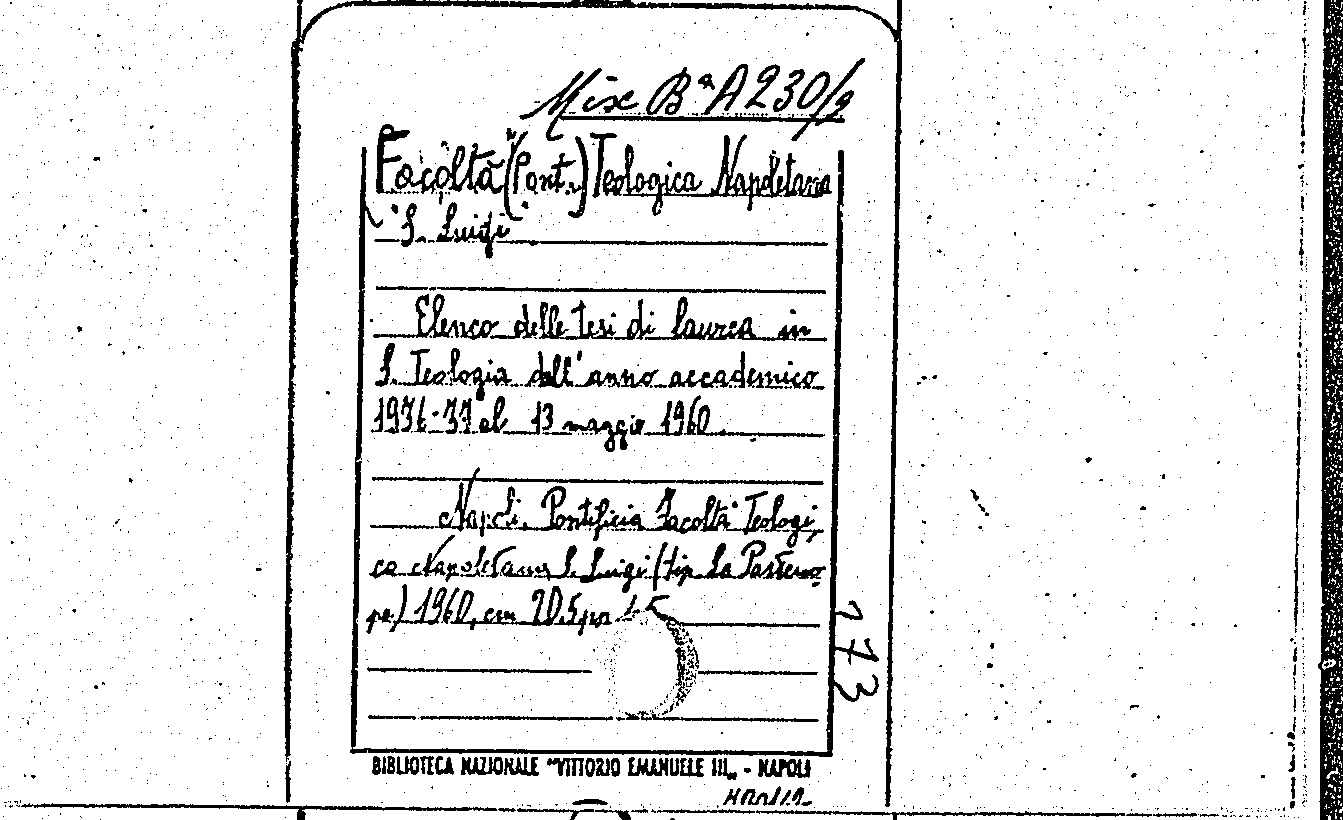 Misc Bª A 230/2
Facoltà (Pont.) Teologica Napoletana
"S. Luigi".
Elenco delle tesi di laurea in
S. Teologia dall'anno accademico
1936-37 al 13 maggio 1960.
Napoli, Pontificia Facoltà Teologi
ca Napoletana S. Luigi (tip. La Parteno
pe) 1960, cm 20,5 pp. 15
273
BIBLIOTECA NAZIONALE "VITTORIO EMANUELE III„ - NAPOLI